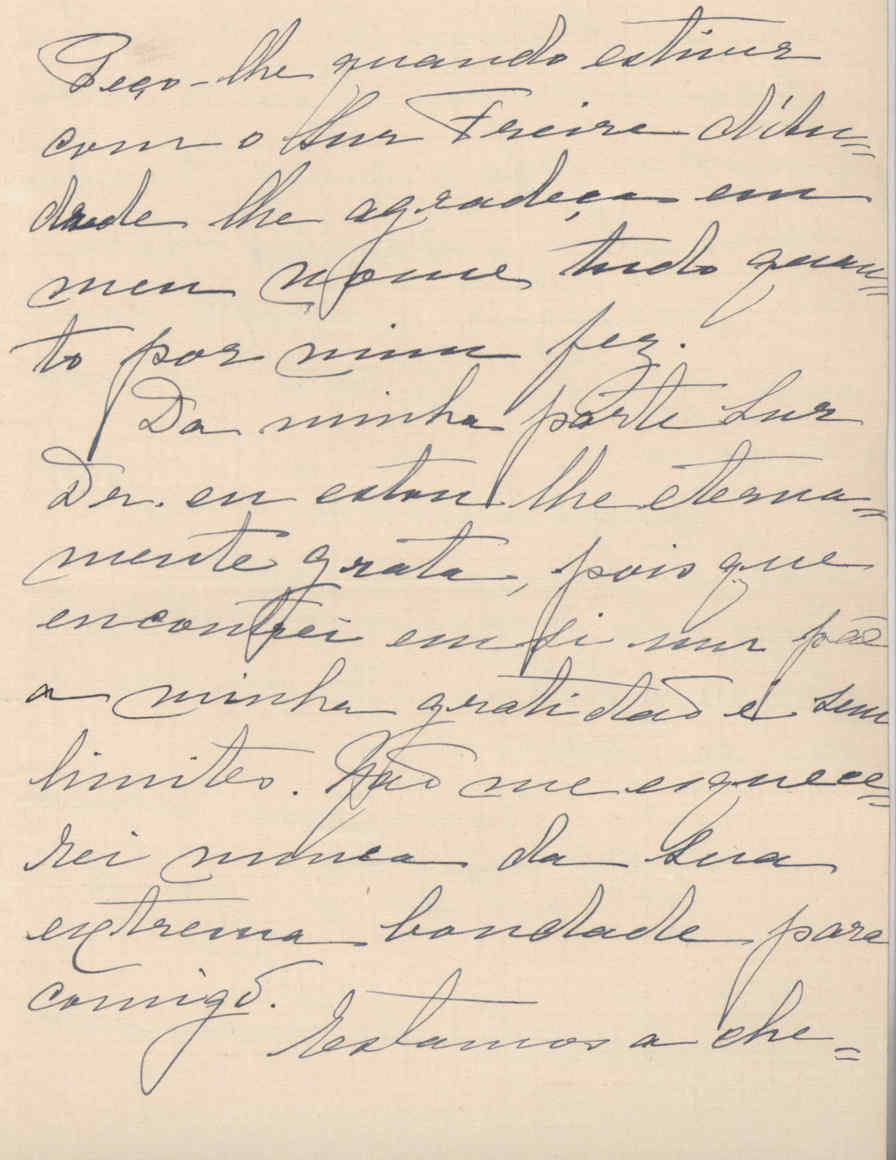 Peço-lhe quando estiver
com o Snr Freire d'An=
drade lhe agradeça em
meu nome tudo quan=
to por mim fez.
Da minha parte Snr
Dr. eu estou lhe eterna=
mente grata, pois que
encontrei em si um pae
a minha gratidão é sem
limites. Não me esquece=
rei nunca da sua
extrema bondade para
comigo.
Estamos a che=